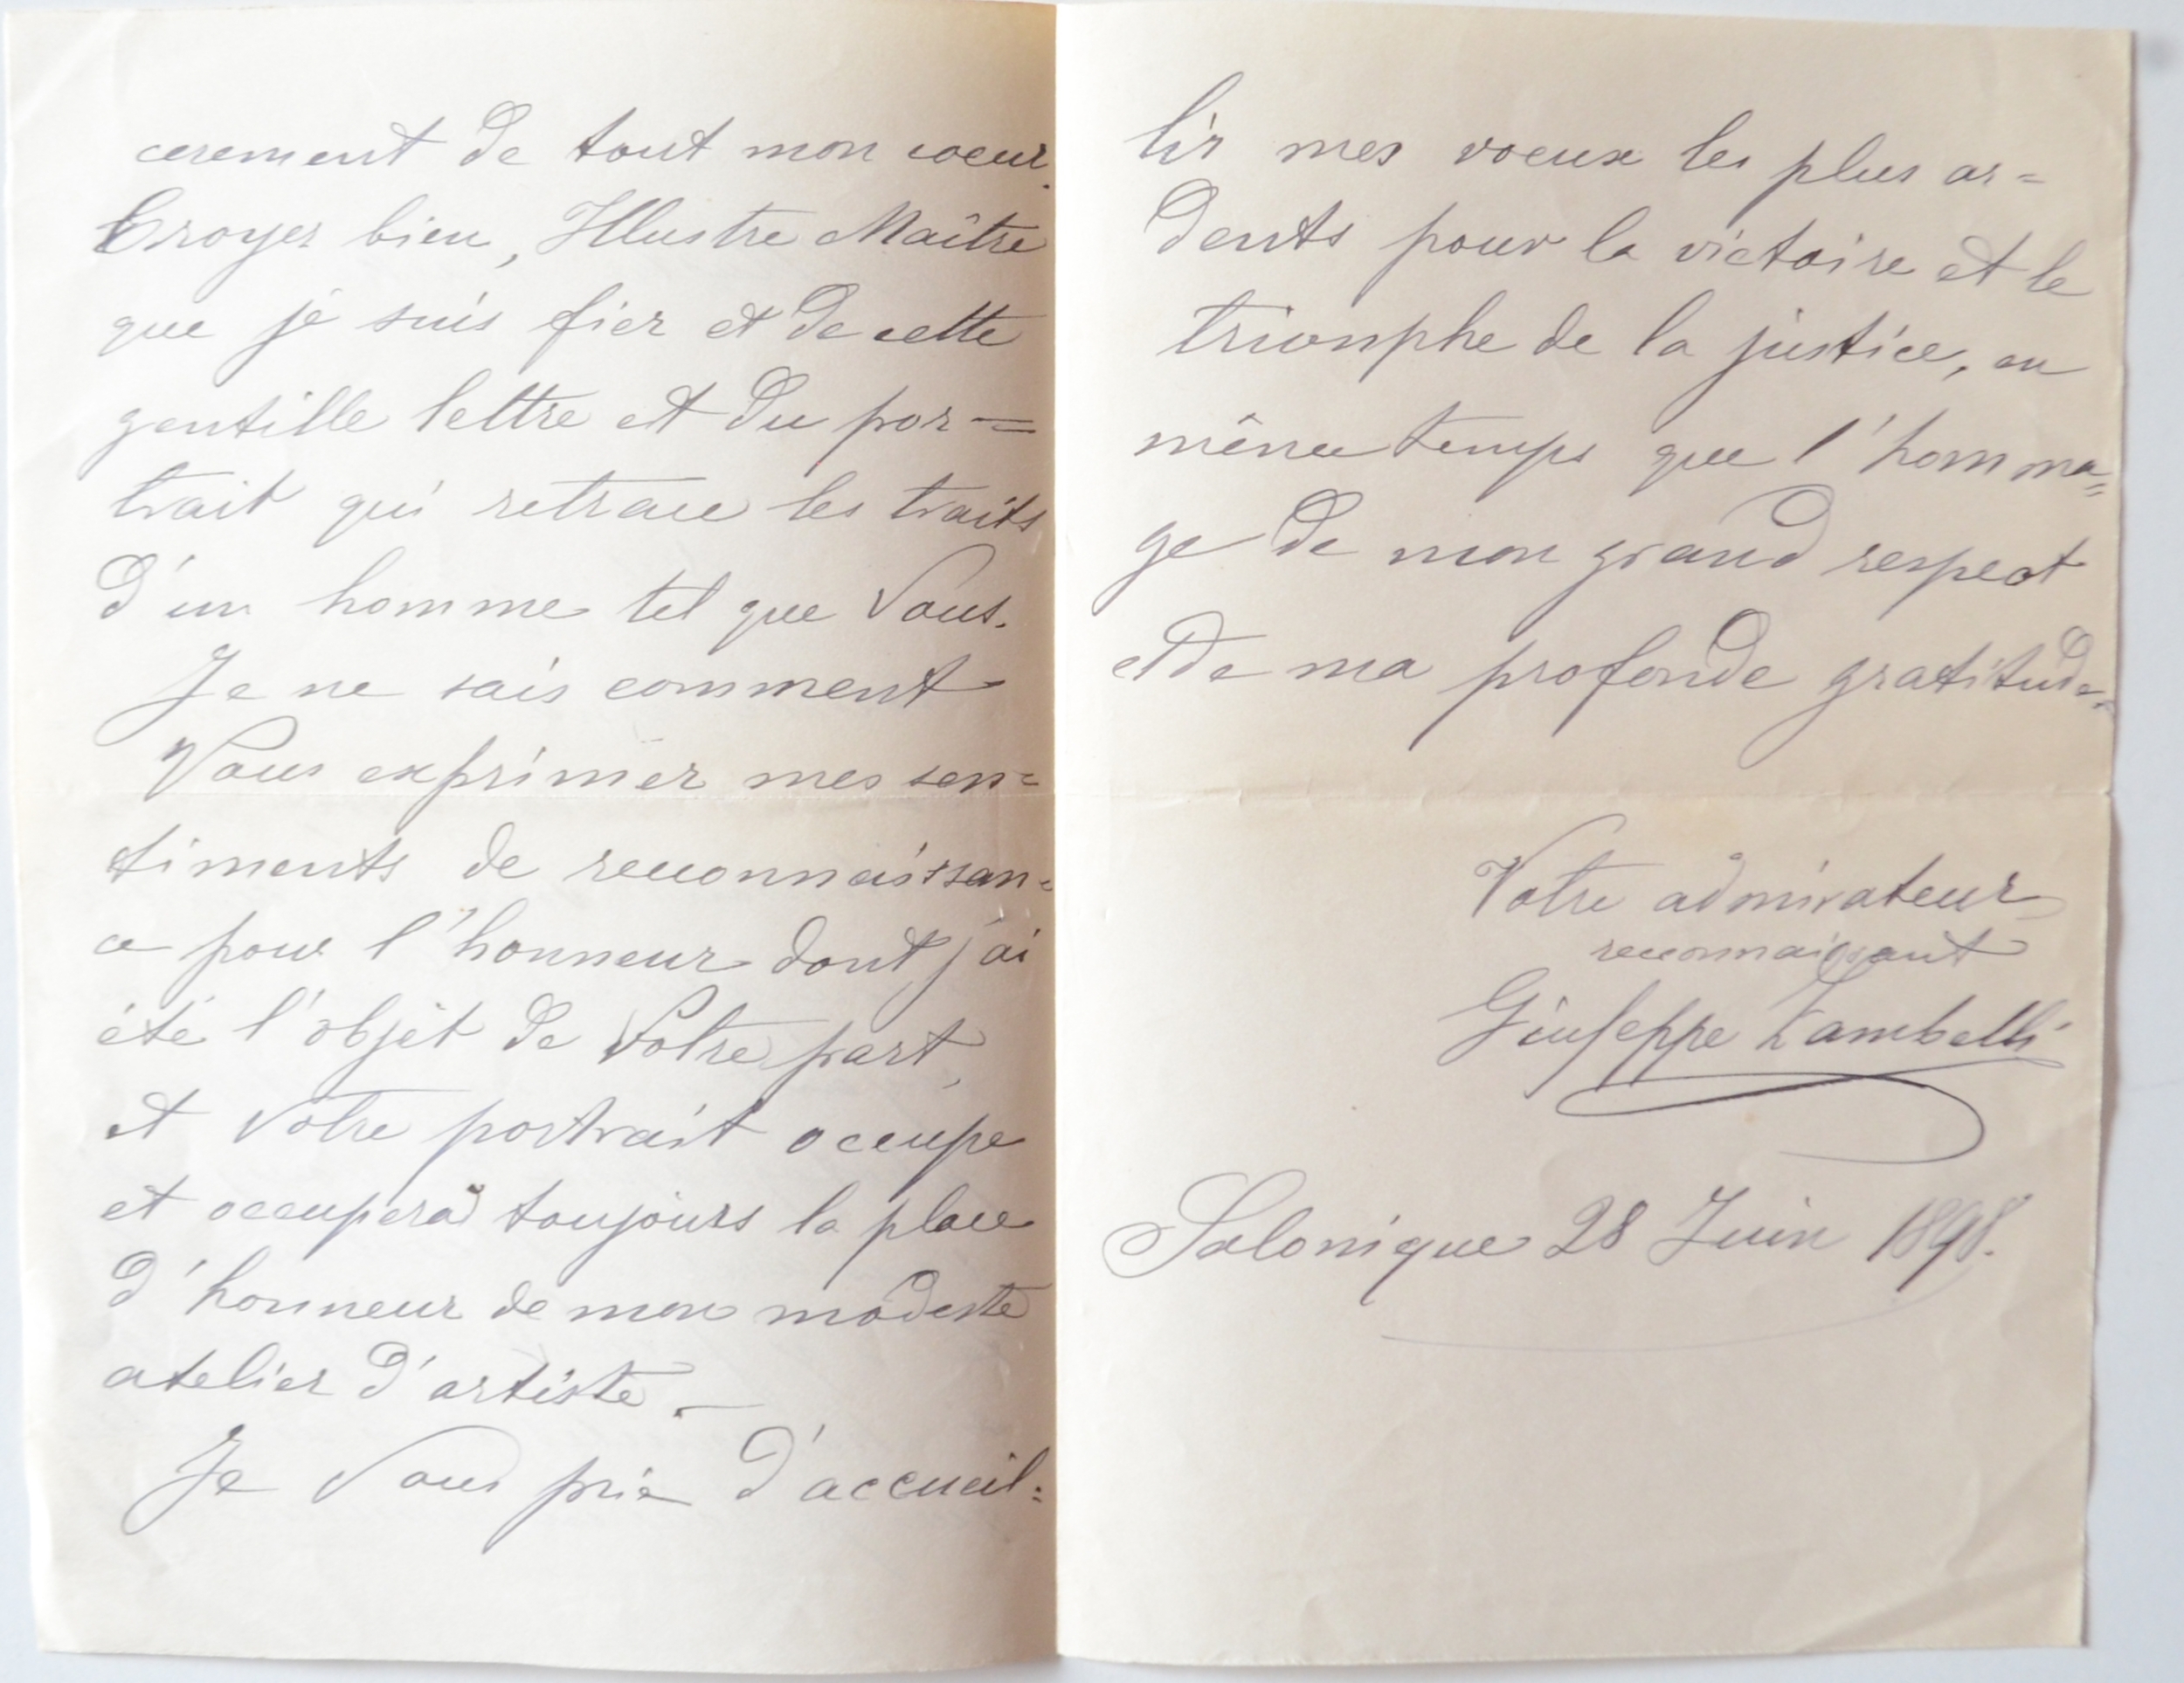 cerement de tout mon coeur.
Croyez bien, Illustre Maître
que je suis fier et de cette
gentille lettre et du por=
trait qui retrace les traits
d'un homme tel que Vous.
Je ne sais comment
Vous exprimer mes sen=
timents de reconnaissan=
ce pour l'honneur dont j'ai
été l'objet de Votre part,
et Votre portrait occupe
et occupera toujours la place
d'honneur de mon modeste
atelier d'artiste. —
Je Vous prie d'accueil=
lir mes voeux les plus ar=
dents pour la victoire et le
trionphe de la justice, en
même temps que l'homma=
ge de mon grand respect
et de ma profonde gratitude.
Votre admirateur
reconnaissant
Giuseppe Zambelli
Salonique 28 Juin 1898.